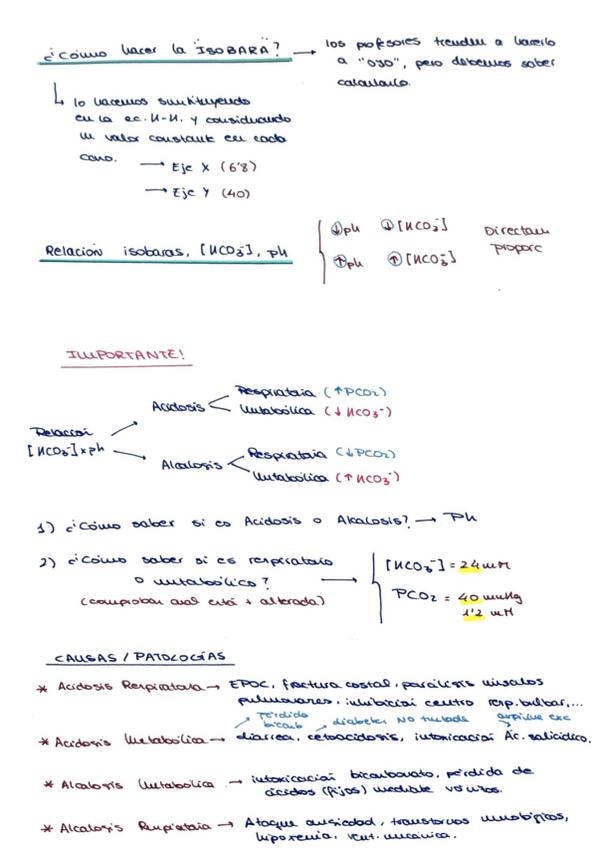 ¿Cómo hacer la "ISOBARA"? → los profesores tienden a hacerlo
a "ojo", pero debemos saber
calcularlo.
lo hacemos sustituyendo
en la ec. H-H. y considerando
un valor constante en cada
caso.
→ Eje X (6'8)
→ Eje Y (40)
Relación isobaras, [HCO3-], ph
↓ph ↓[HCO3-]
↑ph ↑[HCO3-]
Directam
proporc
IMPORTANTE!
Relación
[HCO3-] x ph
Acidosis
Respiratoria (↑PCO2)
Metabólica (↓HCO3-)
Alcalosis
Respiratoria (↓PCO2)
Metabólica (↑HCO3-)
1) ¿Cómo saber si es Acidosis o Alkalosis? → Ph
2) ¿Cómo saber si es respiratorio
o metabólico?
(comprobar cual está + alterada)
[HCO3-] = 24 mM
PCO2 = 40 mmHg
1'2 mM
CAUSAS / PATOLOGÍAS
* Acidosis Respiratoria → EPOC, fractura costal, parálisis músculos
pulmonares, inhibición centro resp. bulbar,...
pérdida
bicarb
diabetes NO tratada
aspirina exc
* Acidosis Metabólica → diarrea, cetoacidosis, intoxicación Ác. salicídico.
* Alcalosis Metabólica → intoxicación bicarbonato, pérdida de
ácidos (fijos) mediate vómitos.
* Alcalosis Respiratoria → Ataque ansiedad, transtornos
hipoxemia, vent. mecánica.